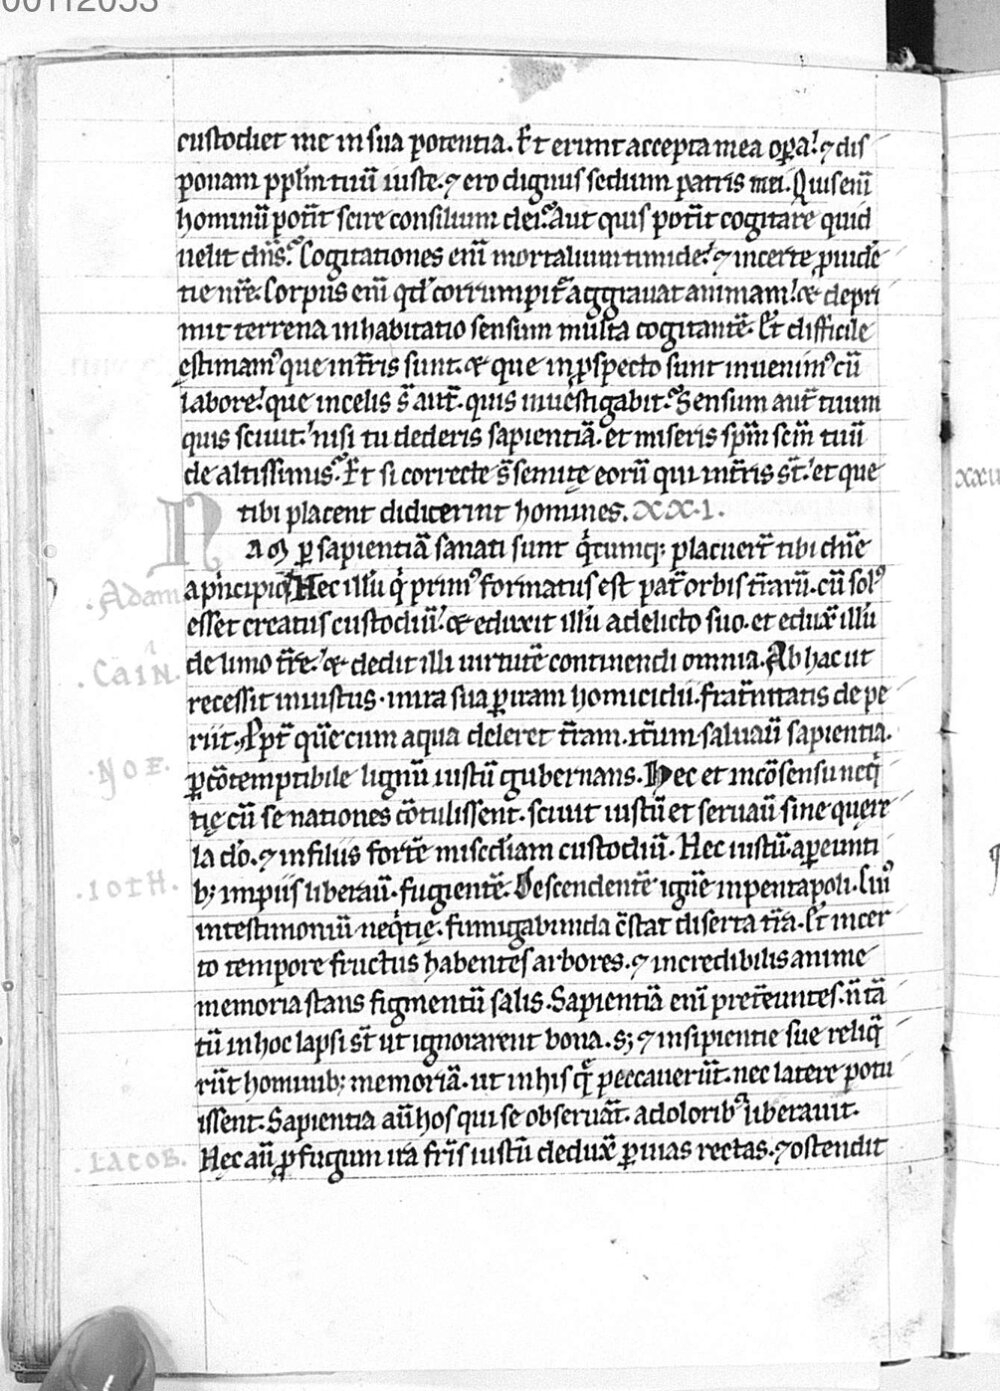 00112053
custodiet me in sua potentia. Et erunt accepta mea oꝑa. ⁊ dis
ponam pplm tuū iuste. ⁊ ero dignus sedium patris mei. Quis eni̅
hominū pot̅it scire consilium dei. Aut quis pot̅it cogitare quid
uelit dn̅s. Cogitationes eni̅ mortalium timide. ⁊ incerte ꝓuide̅
tie nr̅e. Corpus eni̅ qd̅ corrumpit᷑ aggrauat animam. & depri
mit terrena inhabitatio sensum multa cogitante̅. Et difficile
ęstimamꝰ que in tr̅is sunt. & que in ꝓspecto sunt inuenimꝰ cu̅
labore. que in celis s̅ aut̅. quis inuestigabit. Sensum aut̅ tuum
quis sciuit. nisi tu dederis sapientia̅. et miseris spm̅ scm̅ tuu̅
de altissimis. Et si correcte s̅ semitę eoru̅ qui in tr̅is st̅. et que
tibi placent didicerint homines. XX.I.
Nam ꝑ sapientia̅ sanati sunt qͥcumqꝫ placuer̅t tibi dn̅e
a pͥncipio. Hec illu̅ qͥ primꝰ formatus est pat̅ orbis tr̅aru̅. cu̅ solꝰ
.Adam
esset creatus custodiu̅. & eduxit illu̅ a delicto suo. et edux̅ illu̅
de limo tr̅e. & dedit illi uirtute̅ continendi omnia. Ab hac ut
.CAIN.
recessit iniustus. in ira sua ꝑ iram homicidii. frat̅nitatis depe
riit. Ppt̅ que̅ cum aqua deleret tr̅am. it̅um saluau̅ sapientia.
.NOE.
ꝑ co̅temptibile lignu̅ iustu̅ gubernans. Hec et in co̅sensu neqͥ
tię cu̅ se nationes co̅tulissent. sciuit iustu̅ et seruau̅ sine quere
la do̅. ⁊ in filiis forte̅ miscd̅iam custodiu̅. Hec iustu̅ a pereunti
.IOTH.
bꝫ impiis liberau̅. fugiente̅. Descendente̅ igne̅ in pentapoli. Cuiꝰ
in testimoniu̅ neqͥtię. fumigabunda c̅stat diserta tr̅a. Et incer
to tempore fructus habentes arbores. ⁊ incredibilis anime
memoria stans figmentu̅ salis. Sapientia̅ eni̅ pret̅euntes. n̅ ta̅
tu̅ in hoc lapsi st̅ ut ignorarent bona. sꝫ ⁊ insipientie sue reliqͥ
ru̅t hominibꝫ memoria̅. ut in his qͤ peccaueru̅t. nec latere potu
issent. Sapientia au̅ hos qui se obserua̅t. a doloribꝰ liberauit.
Hęc au̅ ꝓfugum irę fr̅is iustu̅ dedux̅ ꝑ uias rectas. ⁊ ostendit
.IACOB.